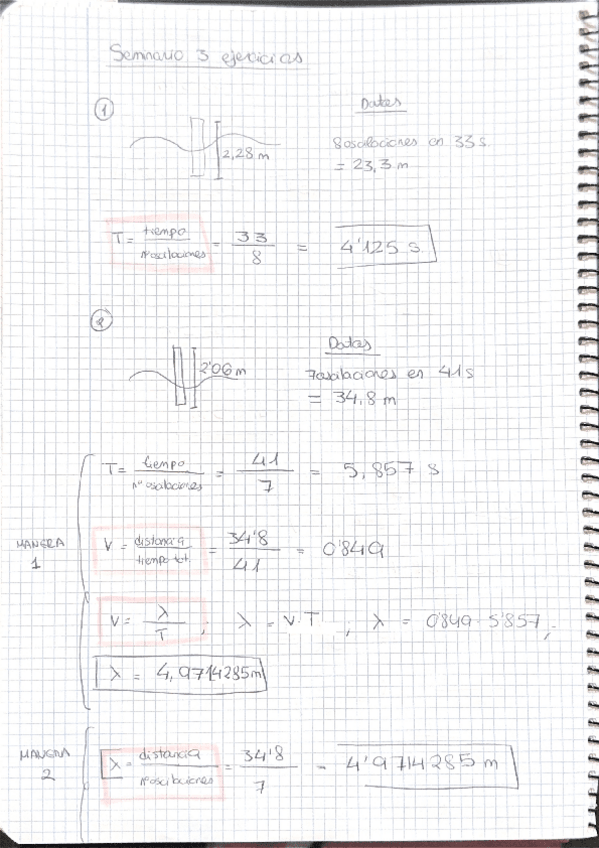 Seminario 3 ejercicios
①
Datos
2,28 m
8 oscilaciones en 33 s.
= 23,3 m
T = tiempo / nº oscilaciones = 33 / 8 = 4'125 s
②
Datos
2'06 m
7 oscilaciones en 41 s
= 34,8 m
T = tiempo / nº oscilaciones = 41 / 7 = 5,857 s
MANERA 1
V = distancia / tiempo tot. = 34'8 / 41 = 0'849
V = λ / T ; λ = V·T ; λ = 0'849 · 5'857 ;
λ = 4,9714285 m
MANERA 2
λ = distancia / nº oscilaciones = 34'8 / 7 = 4'9714285 m